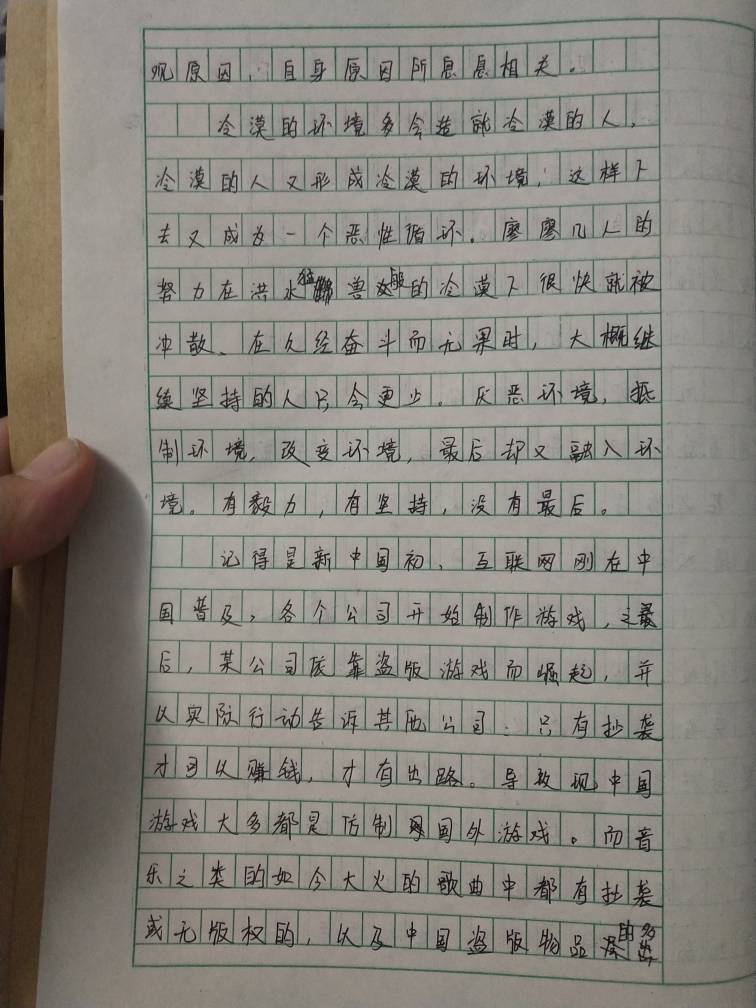 观原因、自身原因所息息相关。
冷漠的环境多会造就冷漠的人，
冷漠的人又形成冷漠的环境，这样下
去又成为一个恶性循环。廖廖几人的
努力在洪水猛兽般的冷漠下很快就被
冲散、在久经奋斗而无果时，大概继
续坚持的人只会更少。厌恶环境，抵
制环境，改变环境，最后却又融入环
境。有毅力，有坚持，没有最后。
记得是新中国初、互联网刚在中
国普及，各个公司开始制作游戏，最
后，某公司依靠盗版游戏而崛起，并
以实际行动告诉其他公司：只有抄袭
才可以赚钱，才有出路。导致现中国
游戏大多都是仿制国外游戏。而音
乐之类的如今大火的歌曲中都有抄袭
或无版权的，以及中国盗版物品的